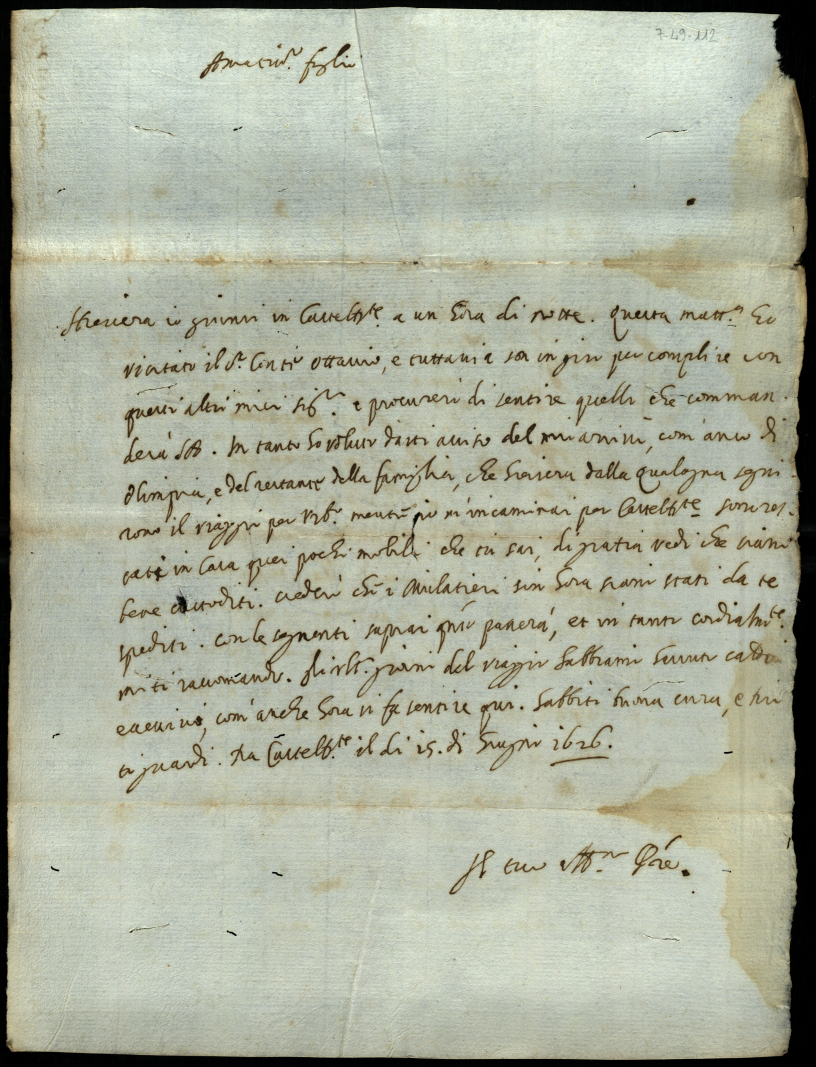 7-49-112
Amatis.º figlio
Hiersera io giunsi in Castelb.te a un hora di notte. Questa matt.a ho
visitato il S.r Conte Ottavio, e tuttavia son in giro per complire con
questi altri miei Sig.ri e procurerò di sentire quello che comman-
derà SA. In tanto ho voluto darti aviso del mio arrivo, com'anco di
Olimpia, e del restante della famiglia, che hiersera dalla qualogna segui-
rono il viaggio per Urb.o mentre io m'incaminai per Castelb.te sono res-
tate in Casa quei pochi mobili che tu sai, di gratia vedi che siano
bene custoditi. crederò che i Mulatieri sin hora siano stati da te
spediti. con le seguenti saprai q.to passerà, et in tanto cordialm.te
mi ti raccomando. Gli ult.i giorni del viaggio habbiamo havuto caldo
eccessivo, com'anche hora si fa sentire qui. habbiti buona cura, e Dio
ti guardi. Da Castelb.te il di 15. di Giugno 1626.
Il tuo Aff.mo P.re.